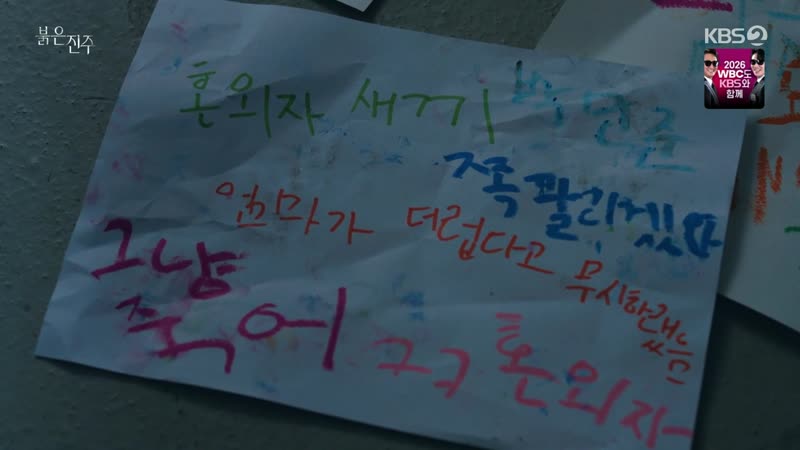 붉은
진주
KBS2
2026
WBC도
KBS와
함께
혼외자 새끼
쪽팔리겠다
엄마가 더럽다고 무시하랬음
그냥
죽어
ㅋㅋ 혼외자